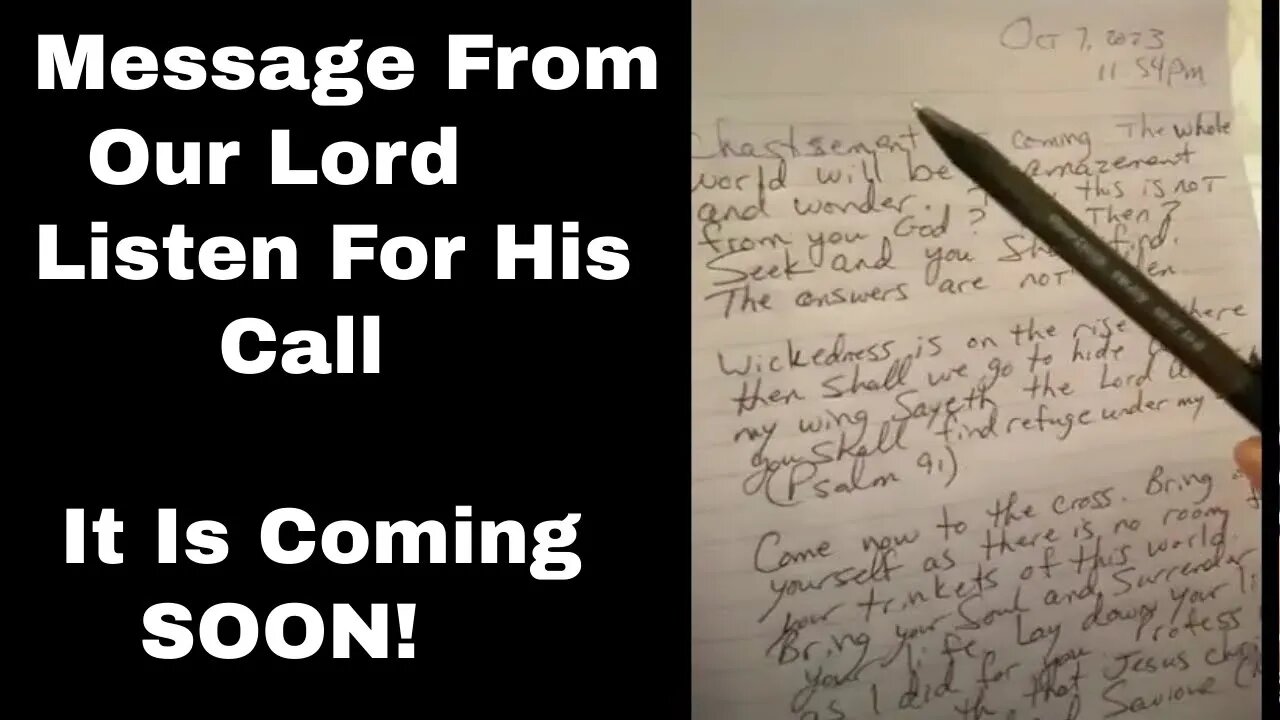 Message From
Our Lord
Listen For His
Call
It Is Coming
SOON!
Oct 7, 2023
11 54pm
Chastsement coming The whole
world will be amazement
and wonder. this is not
from you God? Then?
Seek and you find.
The answers are not
Wickedness is on the rise where
then shall we go to hide
my wing Sayeth the Lord
you shall find refuge under my
(Psalm 91)
Come now to the cross. Bring
yourself as there is no room
your trinkets of this world.
Bring your soul and Surrendar
your life Lay down your
as I did for you Profess
that Jesus
Saviour